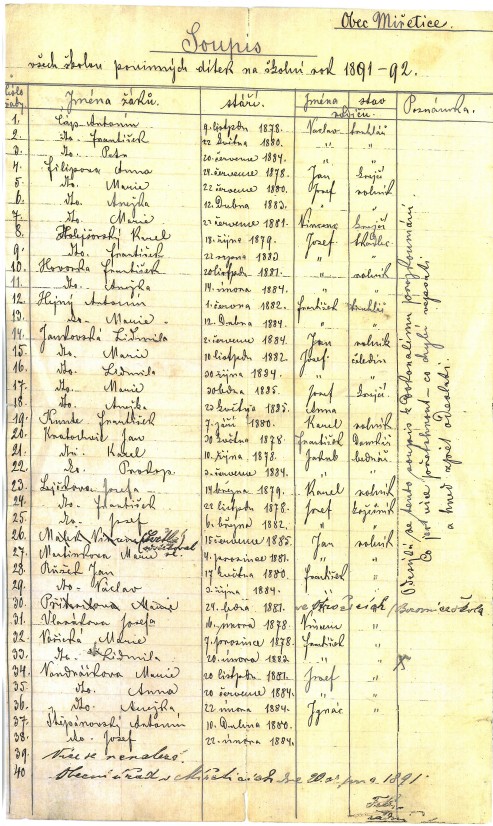 Obec Miřetice.
Soupis
všech školou povinných dítek na školní rok 1891-92.
Číslo řady. Jména žáků. stáří. Jména stav rodičů. Poznámka.
1. Čáp Antonín 9. listopadu 1878. Václav
2. dto. František 22 května 1880. " "
3. dto. Petr 20. července 1884. " "
4. Filipova Anna 24. července 1878. Jan krejčí
5. dto. Marie 22 července 1880. Josef rolník
6. dto. Anežka 12. Dubna 1883. " "
7. dto. Marie 27 července 1881. Vincenc krejčí
8. Karel 18. října 1879. Josef
9. dto. František 22 srpna 1883 " "
10. Hovorka František 20 listopadu 1881. " rolník
11. dto. Anežka 14. února 1884. " "
12. Hejný Antonín 1. června 1882. František
13. dto. Marie 12. Dubna 1884. " "
14. Jankovská Lidmila 2. července 1884. Jan rolník
15. dto. Marie 10 listopadu 1882. Josef čeledín
16. dto. Lidmila 30 října 1884. " "
17. dto. Marie 1885. Josef krejčí
18. dto. Anežka 23 května 1885. Anna
19. Kunte František 7. září 1880. Karel rolník
20. Kratochvil Jan 30 května 1878. František Domkář
21. dto. Karel 10. října 1878. Jakub bednář
22. do. Prokop. 3. července 1884. " "
23. Lejčkova Josefa 14 března 1879. Karel rolník
24. dto. František 28 listopadu 1878. Josef kožešník
25. dto. Josef 6. března 1882. " "
26. Marie 15 července 1885. Jan rolník
27. Martinkova Marie 4. prosince 1881. " "
28. Růžek Jan 17 května 1880. František "
29. do. Václav 3. října 1884. " "
30. Marie 24. ledna 1881.
31. Josefa 16. února 1878. Vincenc "
32. Vořická Marie 7. prosince 1878. František "
33. do. Lidmila 20. února 1883. " " X
34. Vondráčkova Marie 20 listopadu 1881. Josef "
35. do. Anna 20 července 1884. " "
36. dto. Anežka 22 února 1884. Ignác "
37. Štěpánovský Antonín 10. Dubna 1880. " "
38. do. Josef 22. února 1884. " "
39. Více se nenalézá.
40 Obecní úřad v Miřeticích dne 20 srpna 1891.
Podává se tento soupis k dokonalému prozkoumání
Co jest více přetrhnout - co chybí vepsati
a hned zpět odeslati.